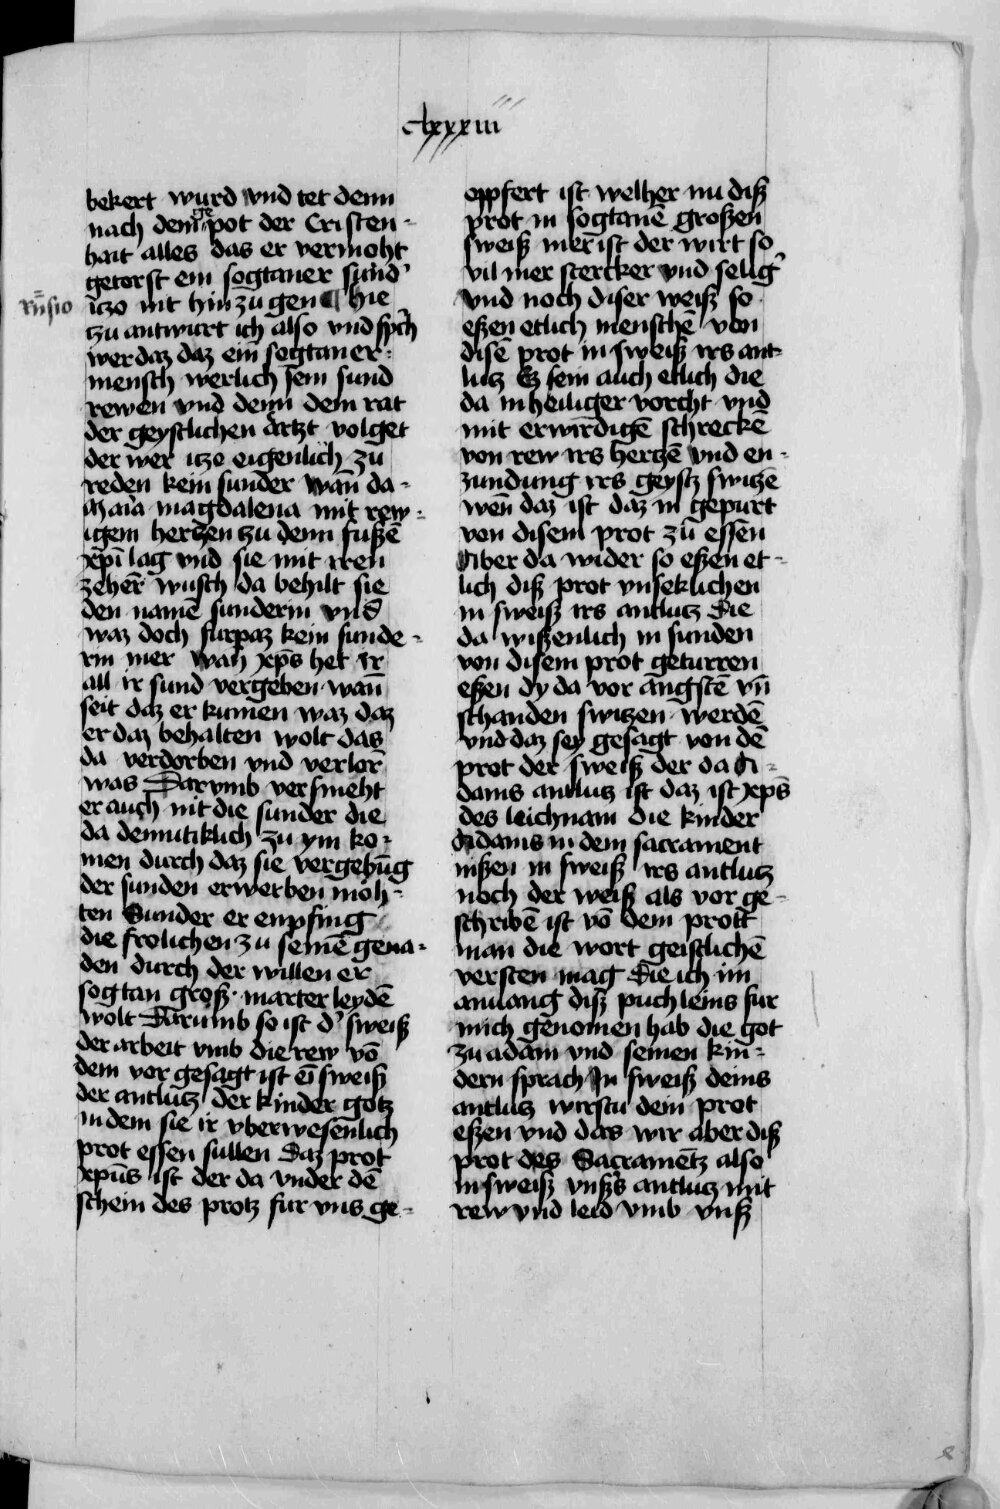 clxxxiii
bekert wurd vnd tet denn
nach dem gepot der Cristen-
hait alles das er vermoht
getorst ein sogtaner sund'
rn̄sio
iczo nit hin zu gen ¶ hie
tzu antwurt ich also vnd sp̄ch
wer daz daz ein sogtaner
mensch werlich sein sund
rewen vnd denn dem rat
der geystlichen artzt volget
der wer itzo eigenlich zu
reden kein sunder wan̄ da-
Maria magdalena mit rew-
igem hertzen tzu denn fußē
xp̄i lag vnd sie mit iren
zeher wusch da behilt sie
den namē sunderin vnd
waz doch furpaz kein sunde-
rin mer wan̄ xp̄s het ir
all ir sund vergeben wan̄
seit daz er kumen waz daz
er daz behalten wolt das
da verdorben vnd verlorē
was Darvmb versmeht
er auch nit die sunder die
da demutiklich zu ym ko-
men durch daz sie vergebūg
der sunden erwerben moh-
ten Sunder er enpfing
die frolichen zu seinē gena-
den durch der willen er
sogtan groß marter leydē
wolt Darumb so ist d' sweiß
der arbeit vmb die rew vō
dem vor gesagt ist ein sweiß
der antlutz der kinder gotz
in dem sie ir vberwesenlich
prot essen sullen Daz prot
xp̄us ist der da vnder dē
schein des protz fur vns ge-
oppfert ist welher nu diß
prot in sogtanē großen
sweiß mer ist der wirt so
vil mer stercker vnd selig'
vnd noch diser weiß so
eßen etlich menschē von
disē prot in sweiß irs ant-
lutz Ez sein auch etlich die
da in heiliger vorcht vnd
mit erwirdigē schreckē
von rew irs hertzē vnd en-
zundung irs geystz switzē
wen̄ daz ist daz in gepurt
von disem prot zu essen
Aber da wider so eßen et-
lich diß prot vnseklichen
in sweiß irs antlutz Die
da wißenlich in sunden
von disem prot geturren
eßen dy da vor angstē vn̄
schanden switzen werdē
vnd daz sey gesagt von dē
prot der sweiß der da A-
dams antlutz ist daz ist xp̄s
des leichnam die kinder
Adams in dem sacrament
nißen in sweiß irs antlutz
noch der weiß als vor ge-
schribē ist vō dem prott
man die wort geistlichē
versten mag Die ich im
anuang diß puchleins fur
mich genomen hab die got
zu adam vnd seinen kin-
dern sprach In sweiß deins
antlutz wirstu dein prot
eßen vnd das wir aber diß
prot des Sacramētz also
in sweiß vnßs antlutz mit
rew vnd leid vmb vnß